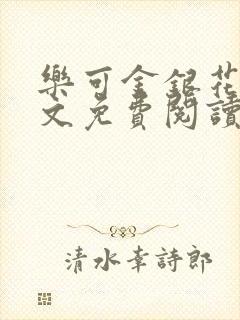 樂可金銀花
文免費閱讀
清水幸詩郎